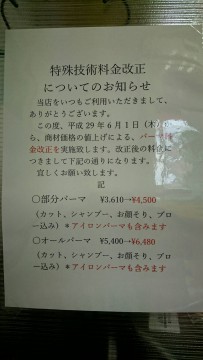 特殊技術料金改正
についてのお知らせ
当店をいつもご利用いただきまして、
ありがとうございます。
この度、平成29年6月1日(木)か
ら、商材価格の値上げによる、パーマ料
金改正を実施致します。改正後の料金に
つきまして下記の通りになります。
宜しくお願い致します。
記
〇部分パーマ ¥3,610→¥4,500
(カット、シャンプー、お顔そり、ブロ
ー込み)*アイロンパーマも含みます
〇オールパーマ ¥5,400→¥6,480
(カット、シャンプー、お顔そり、ブロ
ー込み)*アイロンパーマも含みます